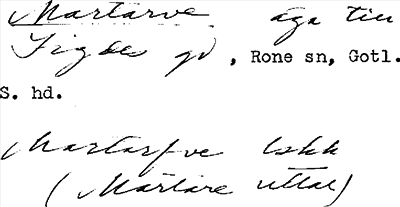 Martarve äga till
Sigdes gd, Rone sn, Gotl.
S. hd.
Martarfve Lskk
(Martare uttal)